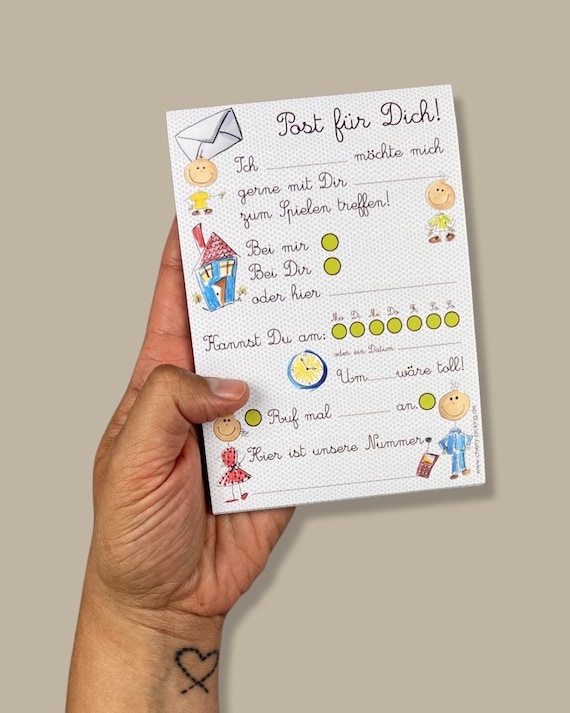 Post für Dich!
Ich ________ möchte mich
gerne mit Dir ________
zum Spielen treffen!
Bei mir
Bei Dir
oder hier ________
Mo Di Mi Do Fr Sa So
Kannst Du am:
oder ein Datum ________
Um ____ wäre toll!
Ruf mal ______ an.
Hier ist unsere Nummer
www.cherry-picking.de